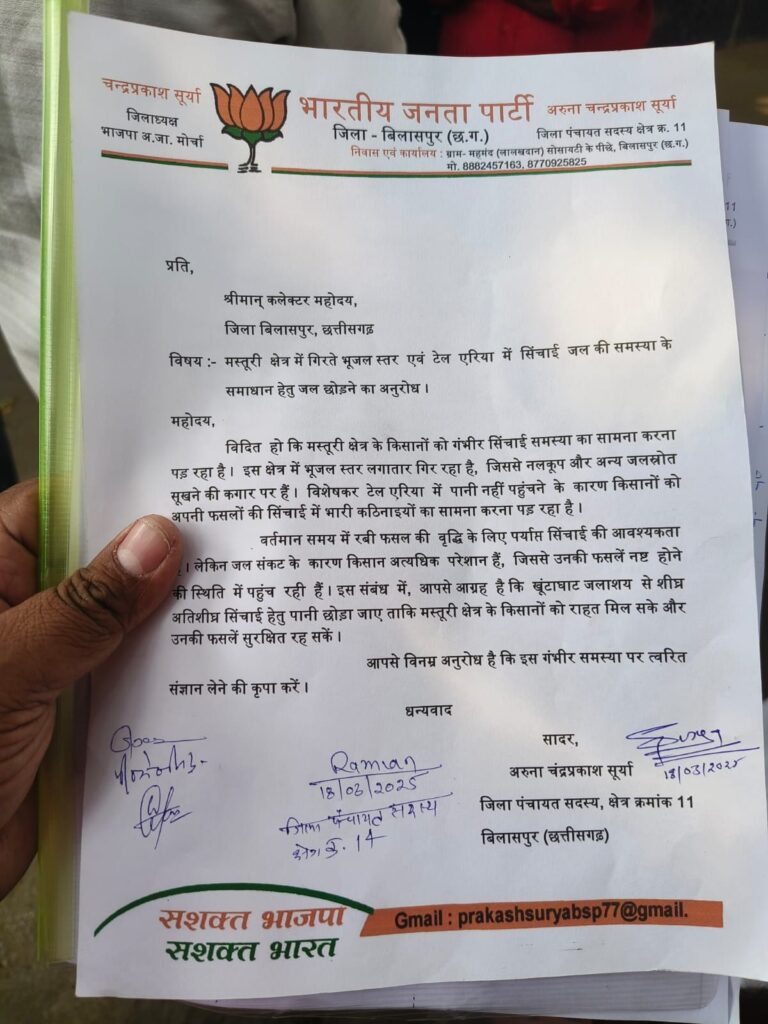 चन्द्रप्रकाश सूर्या
जिलाध्यक्ष
भाजपा अ.जा. मोर्चा
भारतीय जनता पार्टी
जिला - बिलासपुर (छ.ग.)
अरुना चन्द्रप्रकाश सूर्या
जिला पंचायत सदस्य क्षेत्र क्र. 11
निवास एवं कार्यालय : ग्राम- महमंद (लालखदान) सोसायटी के पीछे, बिलासपुर (छ.ग.)
मो. 8882457163, 8770925825
प्रति,
श्रीमान् कलेक्टर महोदय,
जिला बिलासपुर, छत्तीसगढ़
विषय :- मस्तूरी क्षेत्र में गिरते भूजल स्तर एवं टेल एरिया में सिंचाई जल की समस्या के
समाधान हेतु जल छोड़ने का अनुरोध ।
महोदय,
विदित हो कि मस्तूरी क्षेत्र के किसानों को गंभीर सिंचाई समस्या का सामना करना
पड़ रहा है । इस क्षेत्र में भूजल स्तर लगातार गिर रहा है, जिससे नलकूप और अन्य जलस्रोत
सूखने की कगार पर हैं । विशेषकर टेल एरिया में पानी नहीं पहुंचने के कारण किसानों को
अपनी फसलों की सिंचाई में भारी कठिनाइयों का सामना करना पड़ रहा है ।
वर्तमान समय में रबी फसल की वृद्धि के लिए पर्याप्त सिंचाई की आवश्यकता
। लेकिन जल संकट के कारण किसान अत्यधिक परेशान हैं, जिससे उनकी फसलें नष्ट होने
की स्थिति में पहुंच रही हैं । इस संबंध में, आपसे आग्रह है कि खूंटाघाट जलाशय से शीघ्र
अतिशीघ्र सिंचाई हेतु पानी छोड़ा जाए ताकि मस्तूरी क्षेत्र के किसानों को राहत मिल सके और
उनकी फसलें सुरक्षित रह सकें ।
आपसे विनम्र अनुरोध है कि इस गंभीर समस्या पर त्वरित
संज्ञान लेने की कृपा करें ।
धन्यवाद
सादर,
18/03/2025
अरुना चंद्रप्रकाश सूर्या
जिला पंचायत सदस्य, क्षेत्र क्रमांक 11
बिलासपुर (छत्तीसगढ़)
18/03/2025
जिला पंचायत सदस्य
क्षेत्र क्र. 14
सशक्त भाजपा
सशक्त भारत
Gmail : prakashsuryabsp77@gmail.